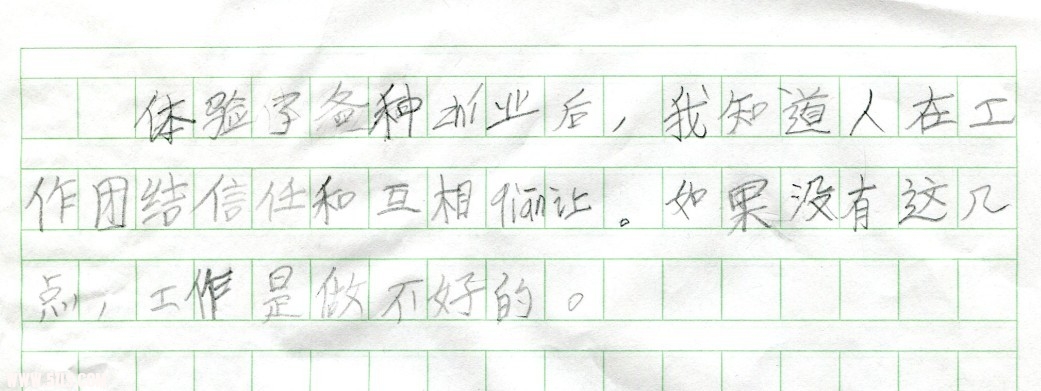 体验了各种行业后，我知道人在工
作团结信任和互相qian让。如果没有这几
点，工作是做不好的。